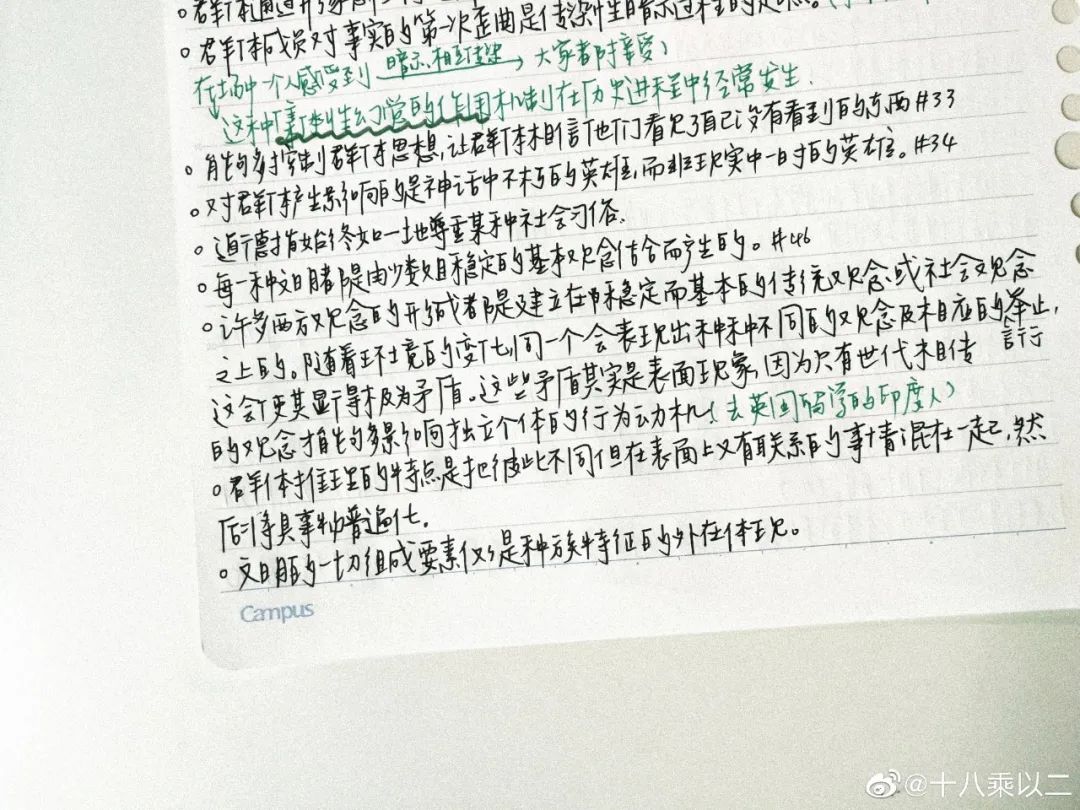 群体通过形象思
群体成员对事实的第一次歪曲是传染性暗示过程的起点。
在场中一个人感受到 暗示、相互传染→ 大家都接受）
这种集体性幻觉的作用机制在历史进程中经常发生.
能够控制群体思想,让群体相信他们看见了自己没有看到的东西 #33
对群体产生影响的是神话中不朽的英雄,而非现实中一时的英雄。#34
道德指始终如一地尊重某种社会习俗.
每一种文明都是由少数稳定的基本观念结合而产生的。#46
许多两方观念的形成都是建立在稳定而基本的传统观念或社会观念
之上的。随着环境的变化,同一个会表现出种种不同的观念及相应的举止,
言行
这会使其显得极为矛盾。这些矛盾其实是表面现象,因为只有世代相传
的观念才能够影响独立个体的行为动机（去英国留学的印度人）
群体推理的特点是把彼此不同但在表面上又有联系的事情混在一起,然
后将具事物普遍化。
文明的一切组成要素仅是种族特征的外在体现。
Campus
@十八乘以二